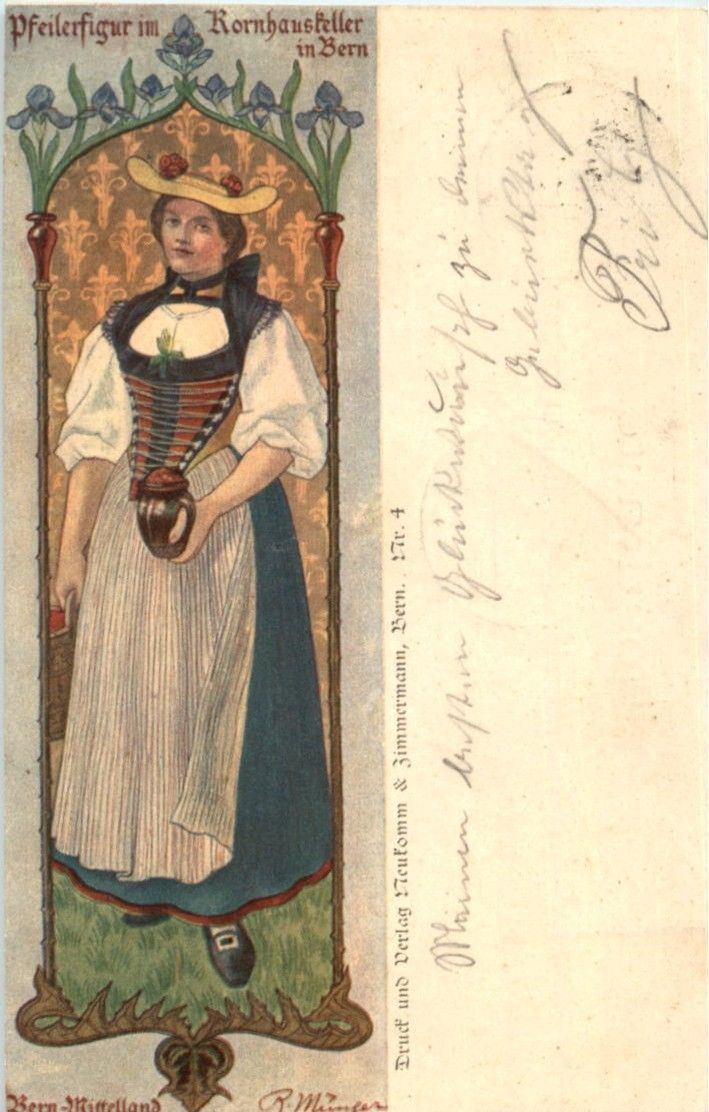 Pfeilerfigur im Kornhauskeller
in Bern
Bern-Mittelland
R. Münger
Druck und Verlag Neukomm & Zimmermann, Bern. Nr. 4
Meinen besten Glückwunsch zu deinem
Geburtstag